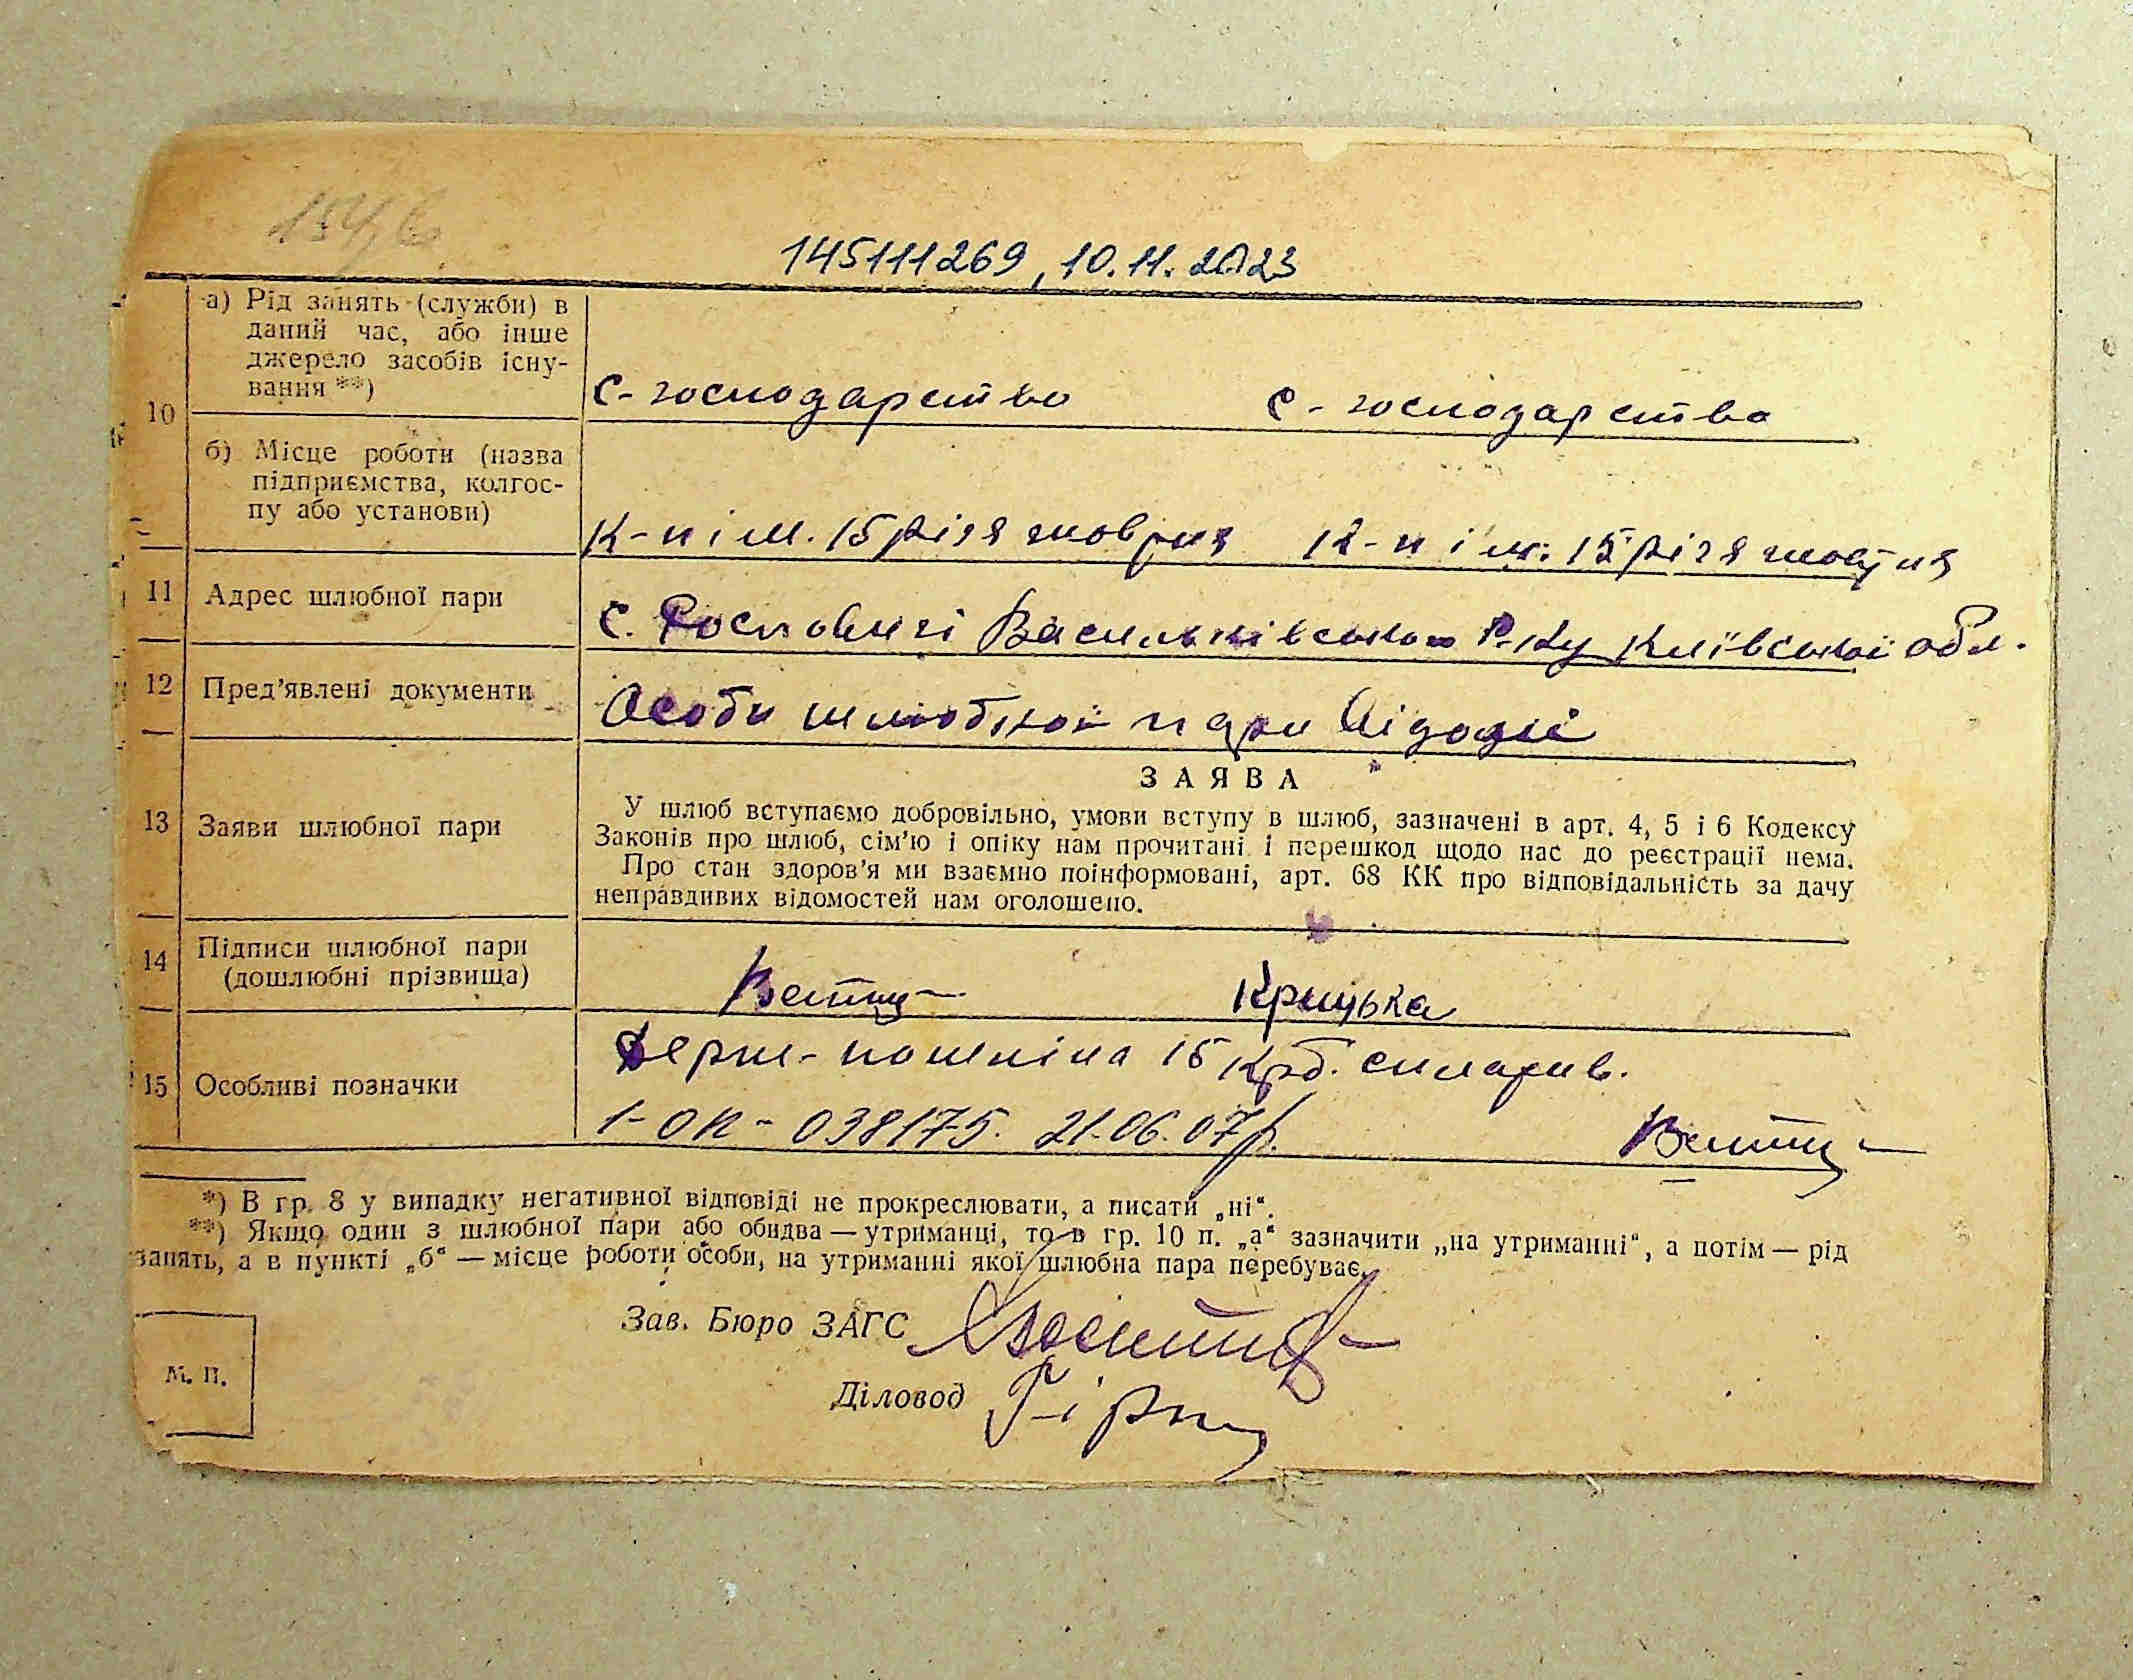 145111269, 10.11.2023
10
а) Рід занять (служби) в
даний час, або інше
джерело засобів існу-
вання **)
С-господарство с-господарство
б) Місце роботи (назва
підприємства, колгос-
пу або установи)
К-п ім. 15 річчя жовтня К-п ім. 15 річчя жовтня
11 Адрес шлюбної пари
с. Васильківського Р-ку Київської обл.
12 Пред’явлені документи
Особи шлюбної пари
13 Заяви шлюбної пари
ЗАЯВА
У шлюб вступаємо добровільно, умови вступу в шлюб, зазначені в арт. 4, 5 і 6 Кодексу
Законів про шлюб, сім’ю і опіку нам прочитані і перешкод щодо нас до реєстрації нема.
Про стан здоров’я ми взаємно поінформовані, арт. 68 КК про відповідальність за дачу
неправдивих відомостей нам оголошено.
14 Підписи шлюбної пари
(дошлюбні прізвища)
Крицька
15 Особливі позначки
Держ-пошліна 15 крб.
1-ОК-038175. 21.06.07р.
*) В гр. 8 у випадку негативної відповіді не прокреслювати, а писати „ні“.
**) Якщо один з шлюбної пари або обидва — утриманці, то в гр. 10 п. „а“ зазначити „на утриманні“, а потім — рід
занять, а в пункті „б“ — місце роботи особи, на утриманні якої шлюбна пара перебуває.
Зав. Бюро ЗАГС
Діловод
М. П.